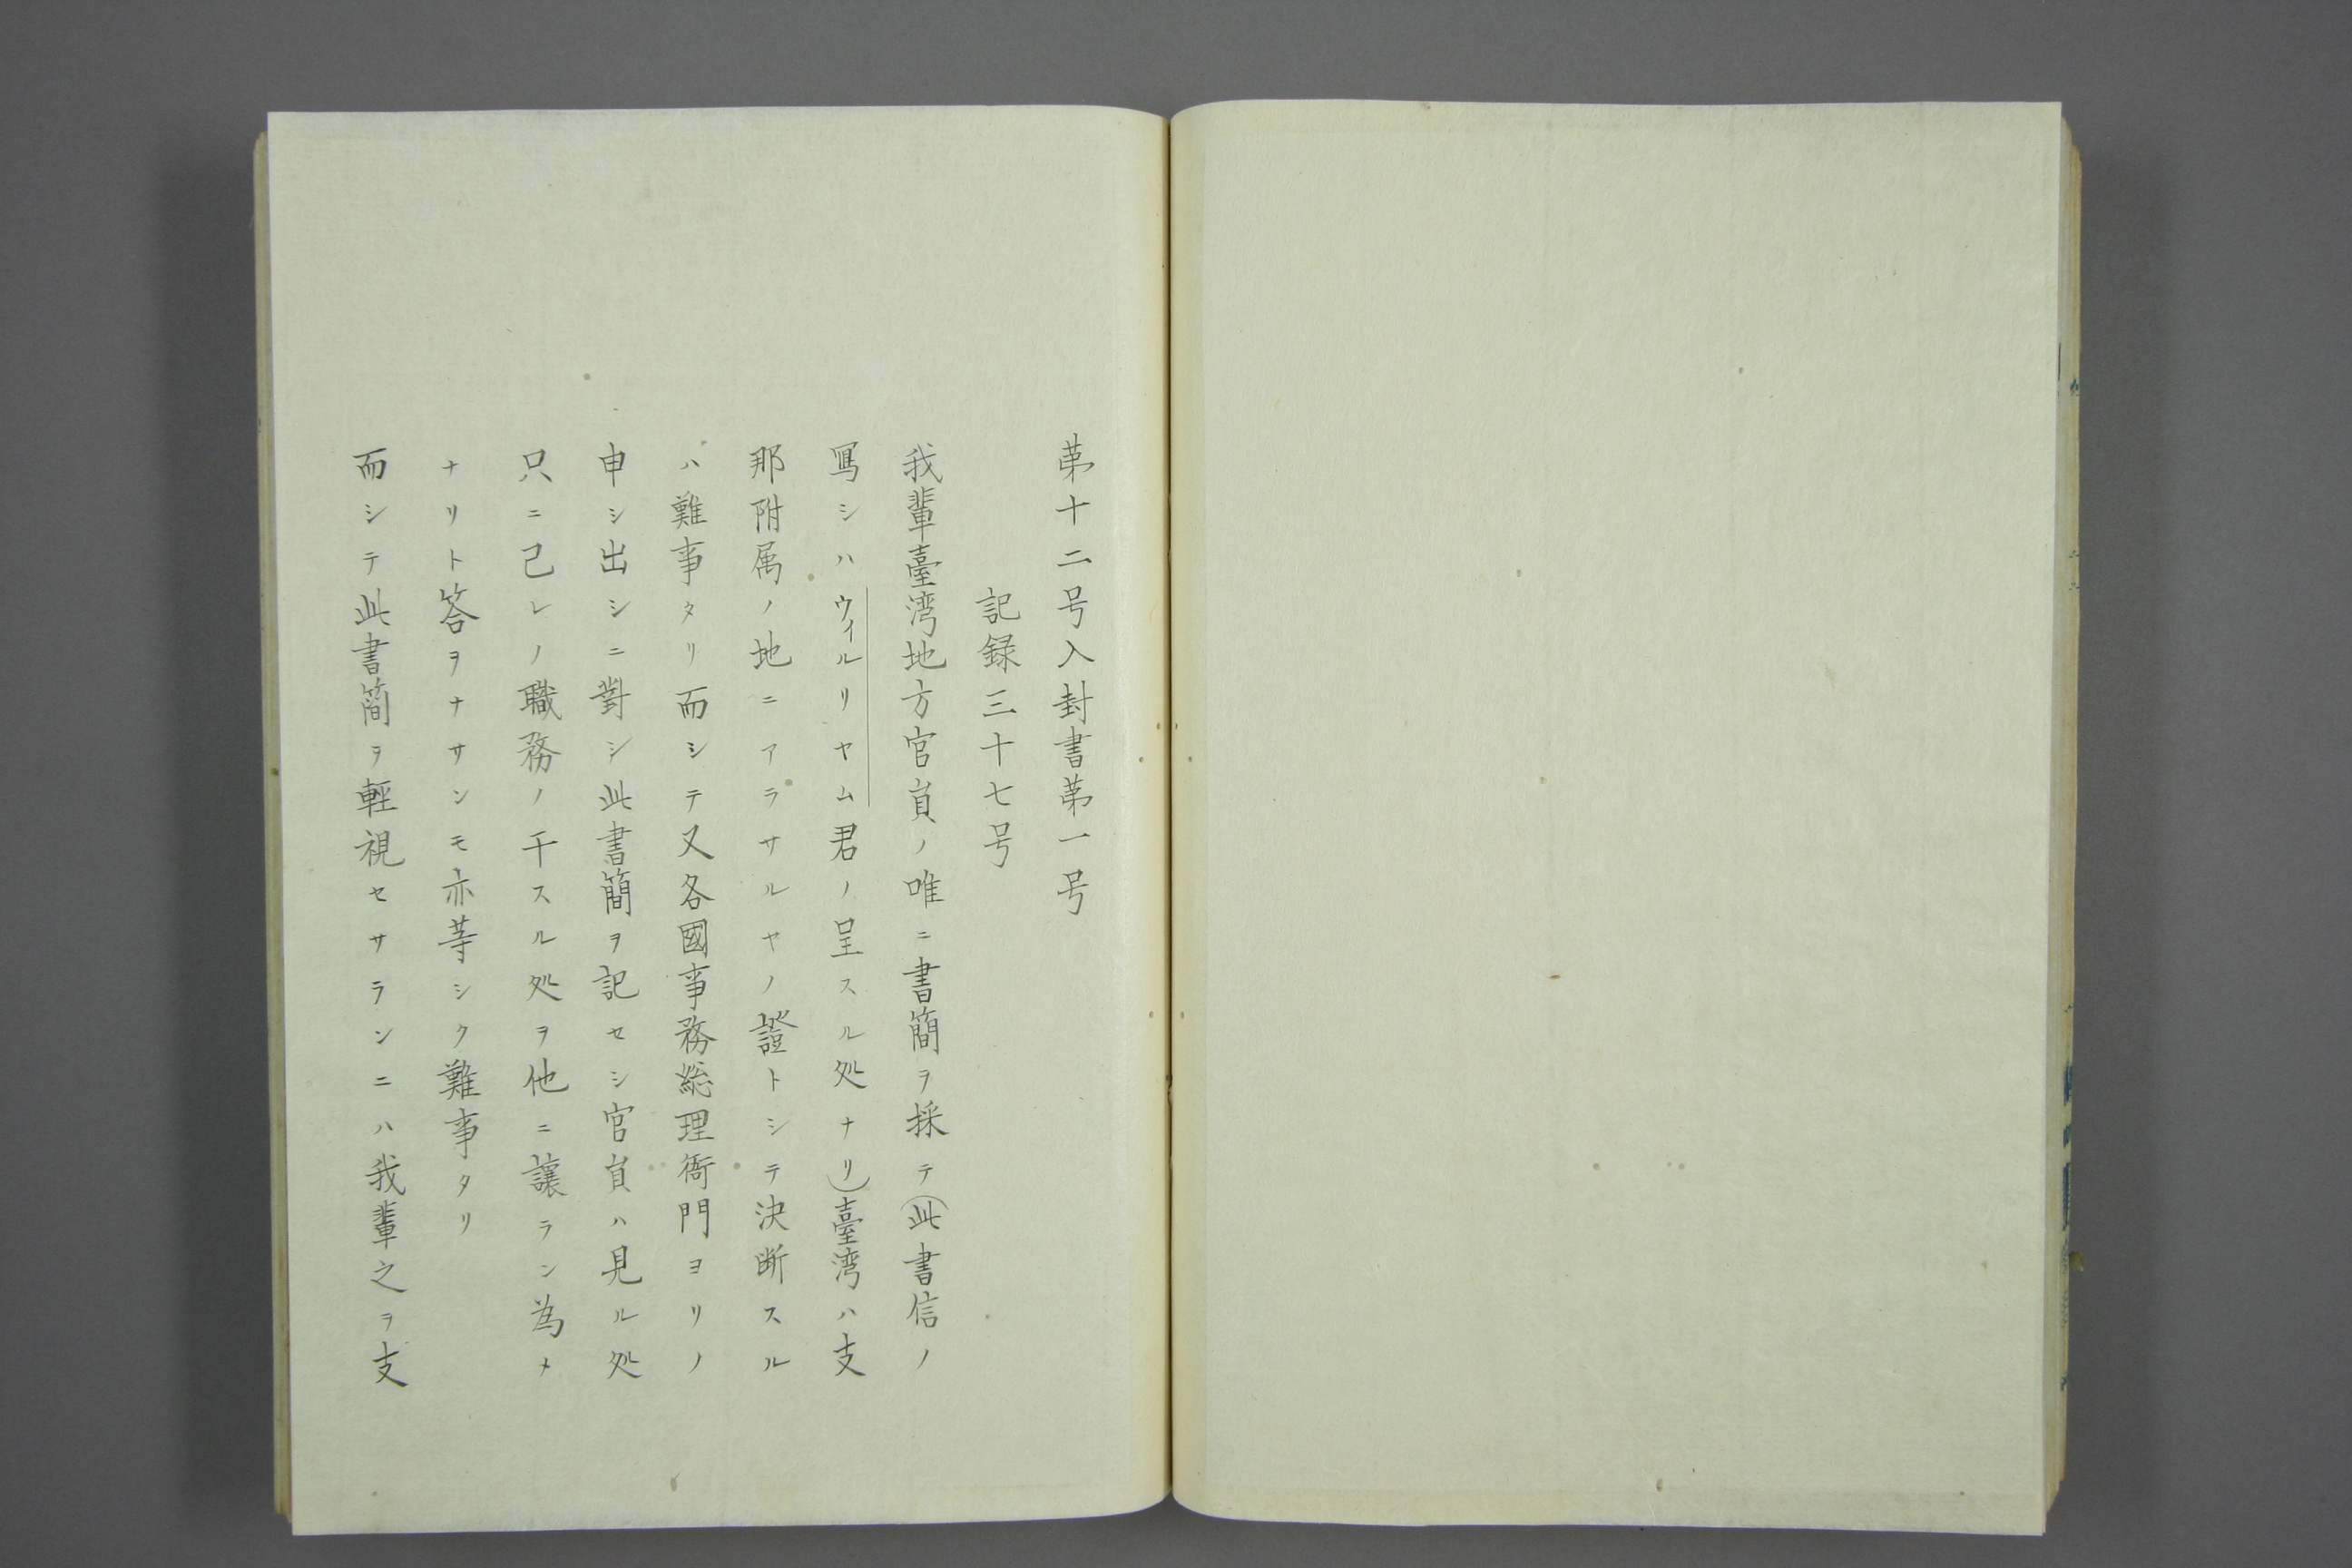 第十二号入封書第一号
記録三十七号
我輩臺湾地方官員ノ唯ニ書簡ヲ採テ(此書信ノ
寫シハウィルリヤム君ノ呈スル処ナリ)臺湾ハ支
那附属ノ地ニアラサルヤノ證トシテ決断スル
ハ難事タリ而シテ又各國事務総理衙門ヨリノ
申シ出シニ對シ此書簡ヲ記セシ官員ハ見ル処
只ニ己レノ職務ノ干スル処ヲ他ニ讓ラン為メ
ナリト答ヲナサンモ亦等シク難事タリ
而シテ此書簡ヲ輕視セサランニハ我輩之ヲ支